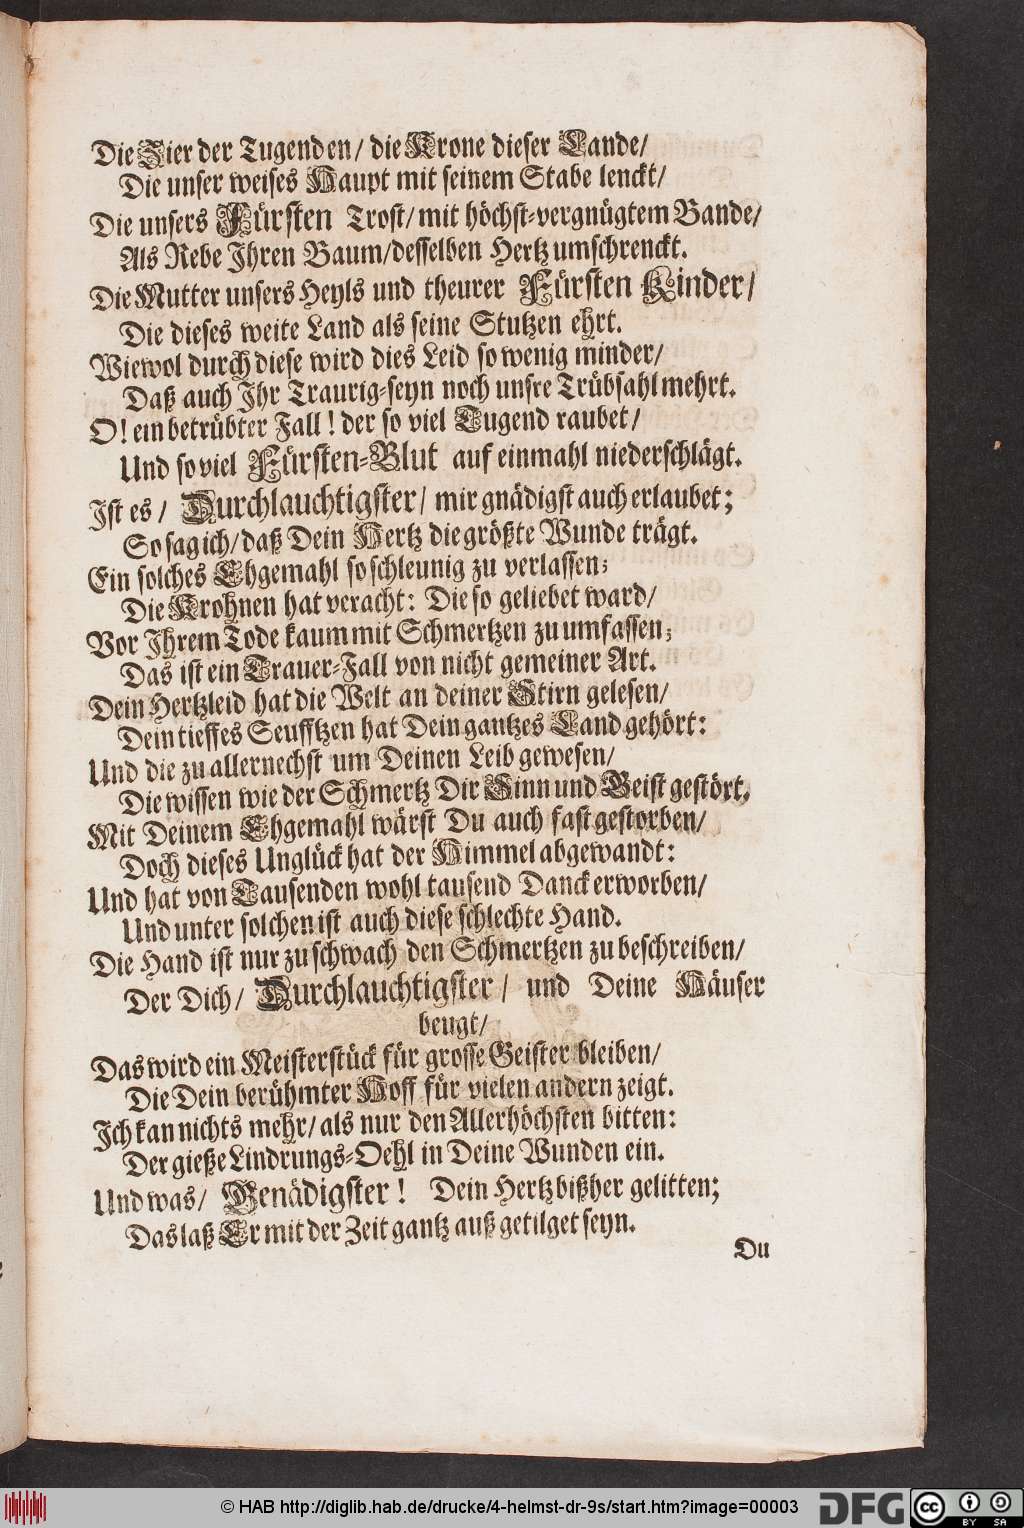 Die Zier der Tugenden/ die Krone dieser Lande/
Die unser weises Haupt mit seinem Stabe lenckt/
Die unsers Fürsten Trost/ mit höchst-vergnügtem Bande/
Als Rebe Ihren Baum/ desselben Hertz umschrenckt.
Die Mutter unsers Heyls und theurer Fürsten Kinder/
Die dieses weite Land als seine Stutzen ehrt.
Wiewol durch diese wird dies Leid so wenig minder/
Daß auch Ihr Traurig-seyn noch unsre Trübsahl mehrt.
O! ein betrübter Fall! der so viel Tugend raubet/
Und so viel Fürsten-Blut auf einmahl niederschlägt.
Ist es/ Durchlauchtigster/ mir gnädigst auch erlaubet;
So sag ich/ daß Dein Hertz die größte Wunde trägt.
Ein solches Ehgemahl so schleunig zu verlassen;
Die Krohnen hat veracht: Die so geliebet ward/
Vor Ihrem Tode kaum mit Schmertzen zu umfassen;
Das ist ein Trauer-Fall von nicht gemeiner Art.
Dein Hertzleid hat die Welt an deiner Stirn gelesen/
Dein tieffes Seufftzen hat Dein gantzes Land gehört:
Und die zu allernechst um Deinen Leib gewesen/
Die wissen wie der Schmertz Dir Sinn und Geist gestört.
Mit Deinem Ehgemahl wärst Du auch fast gestorben/
Doch dieses Unglück hat der Himmel abgewandt:
Und hat von Tausenden wohl tausend Danck erworben/
Und unter solchen ist auch diese schlechte Hand.
Die Hand ist nur zu schwach den Schmertzen zu beschreiben/
Der Dich/ Durchlauchtigster/ und Deine Häuser
beugt/
Das wird ein Meisterstück für grosse Geister bleiben/
Die Dein berühmter Hoff für vielen andern zeigt.
Ich kan nichts mehr/ als nur den Allerhöchsten bitten:
Der gieße Lindrungs-Oehl in Deine Wunden ein.
Und was/ Genädigster! Dein Hertz bißher gelitten;
Das laß Er mit der Zeit gantz auß getilget seyn.
Du
© HAB http://diglib.hab.de/drucke/4-helmst-dr-9s/start.htm?image=00003
DFG
cc BY SA